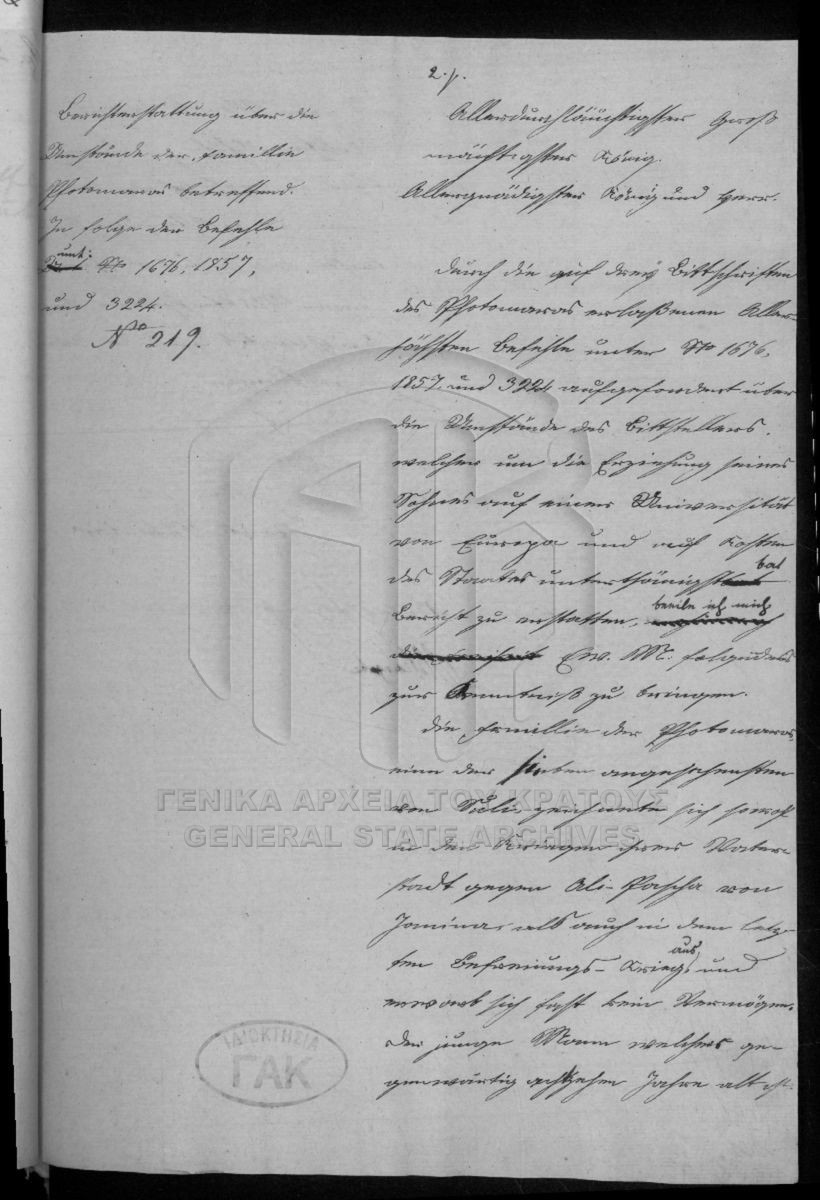 2. p.
Berichterstattung über die
Umstände der Familie
Photomaras betreffend.
In Folge der Befehle
unt: No 1676, 1857,
und 3224.
No 219.
Allerdurchläuchtigster Groß
mächtigster König.
Allergnädigster König und Herr.
Durch die auf drey Bittschriften
des Photomaras erlaßenen Aller-
höchsten Befehle unter No 1676,
1857, und 3224 aufgefordert über
die Umstände des Bittstellers,
welcher um die Erziehung seines
Sohnes auf einer Universität
von Europa und auf Kosten
des Staates unterthänigst bat
Bericht zu erstatten, beeile ich mich
Ew. M. folgendes
zur Kenntniß zu bringen.
Die Familie der Photomaras,
eine der sieben angesehensten
von Suli, zeichnete sich sowohl
in den Kriegen ihrer Vater-
stadt gegen Ali-Pascha von
Janina, als auch in dem letz-
ten Befreiungs-Krieg aus, und
erwarb sich fast kein Vermögen.
Der junge Mann welcher ge-
genwärtig achtzehen Jahre alt ist
ΓΕΝΙΚΑ ΑΡΧΕΙΑ ΤΟΥ ΚΡΑΤΟΥΣ
GENERAL STATE ARCHIVES
ΙΔΙΟΚΤΗΣΙΑ
ΓΑΚ